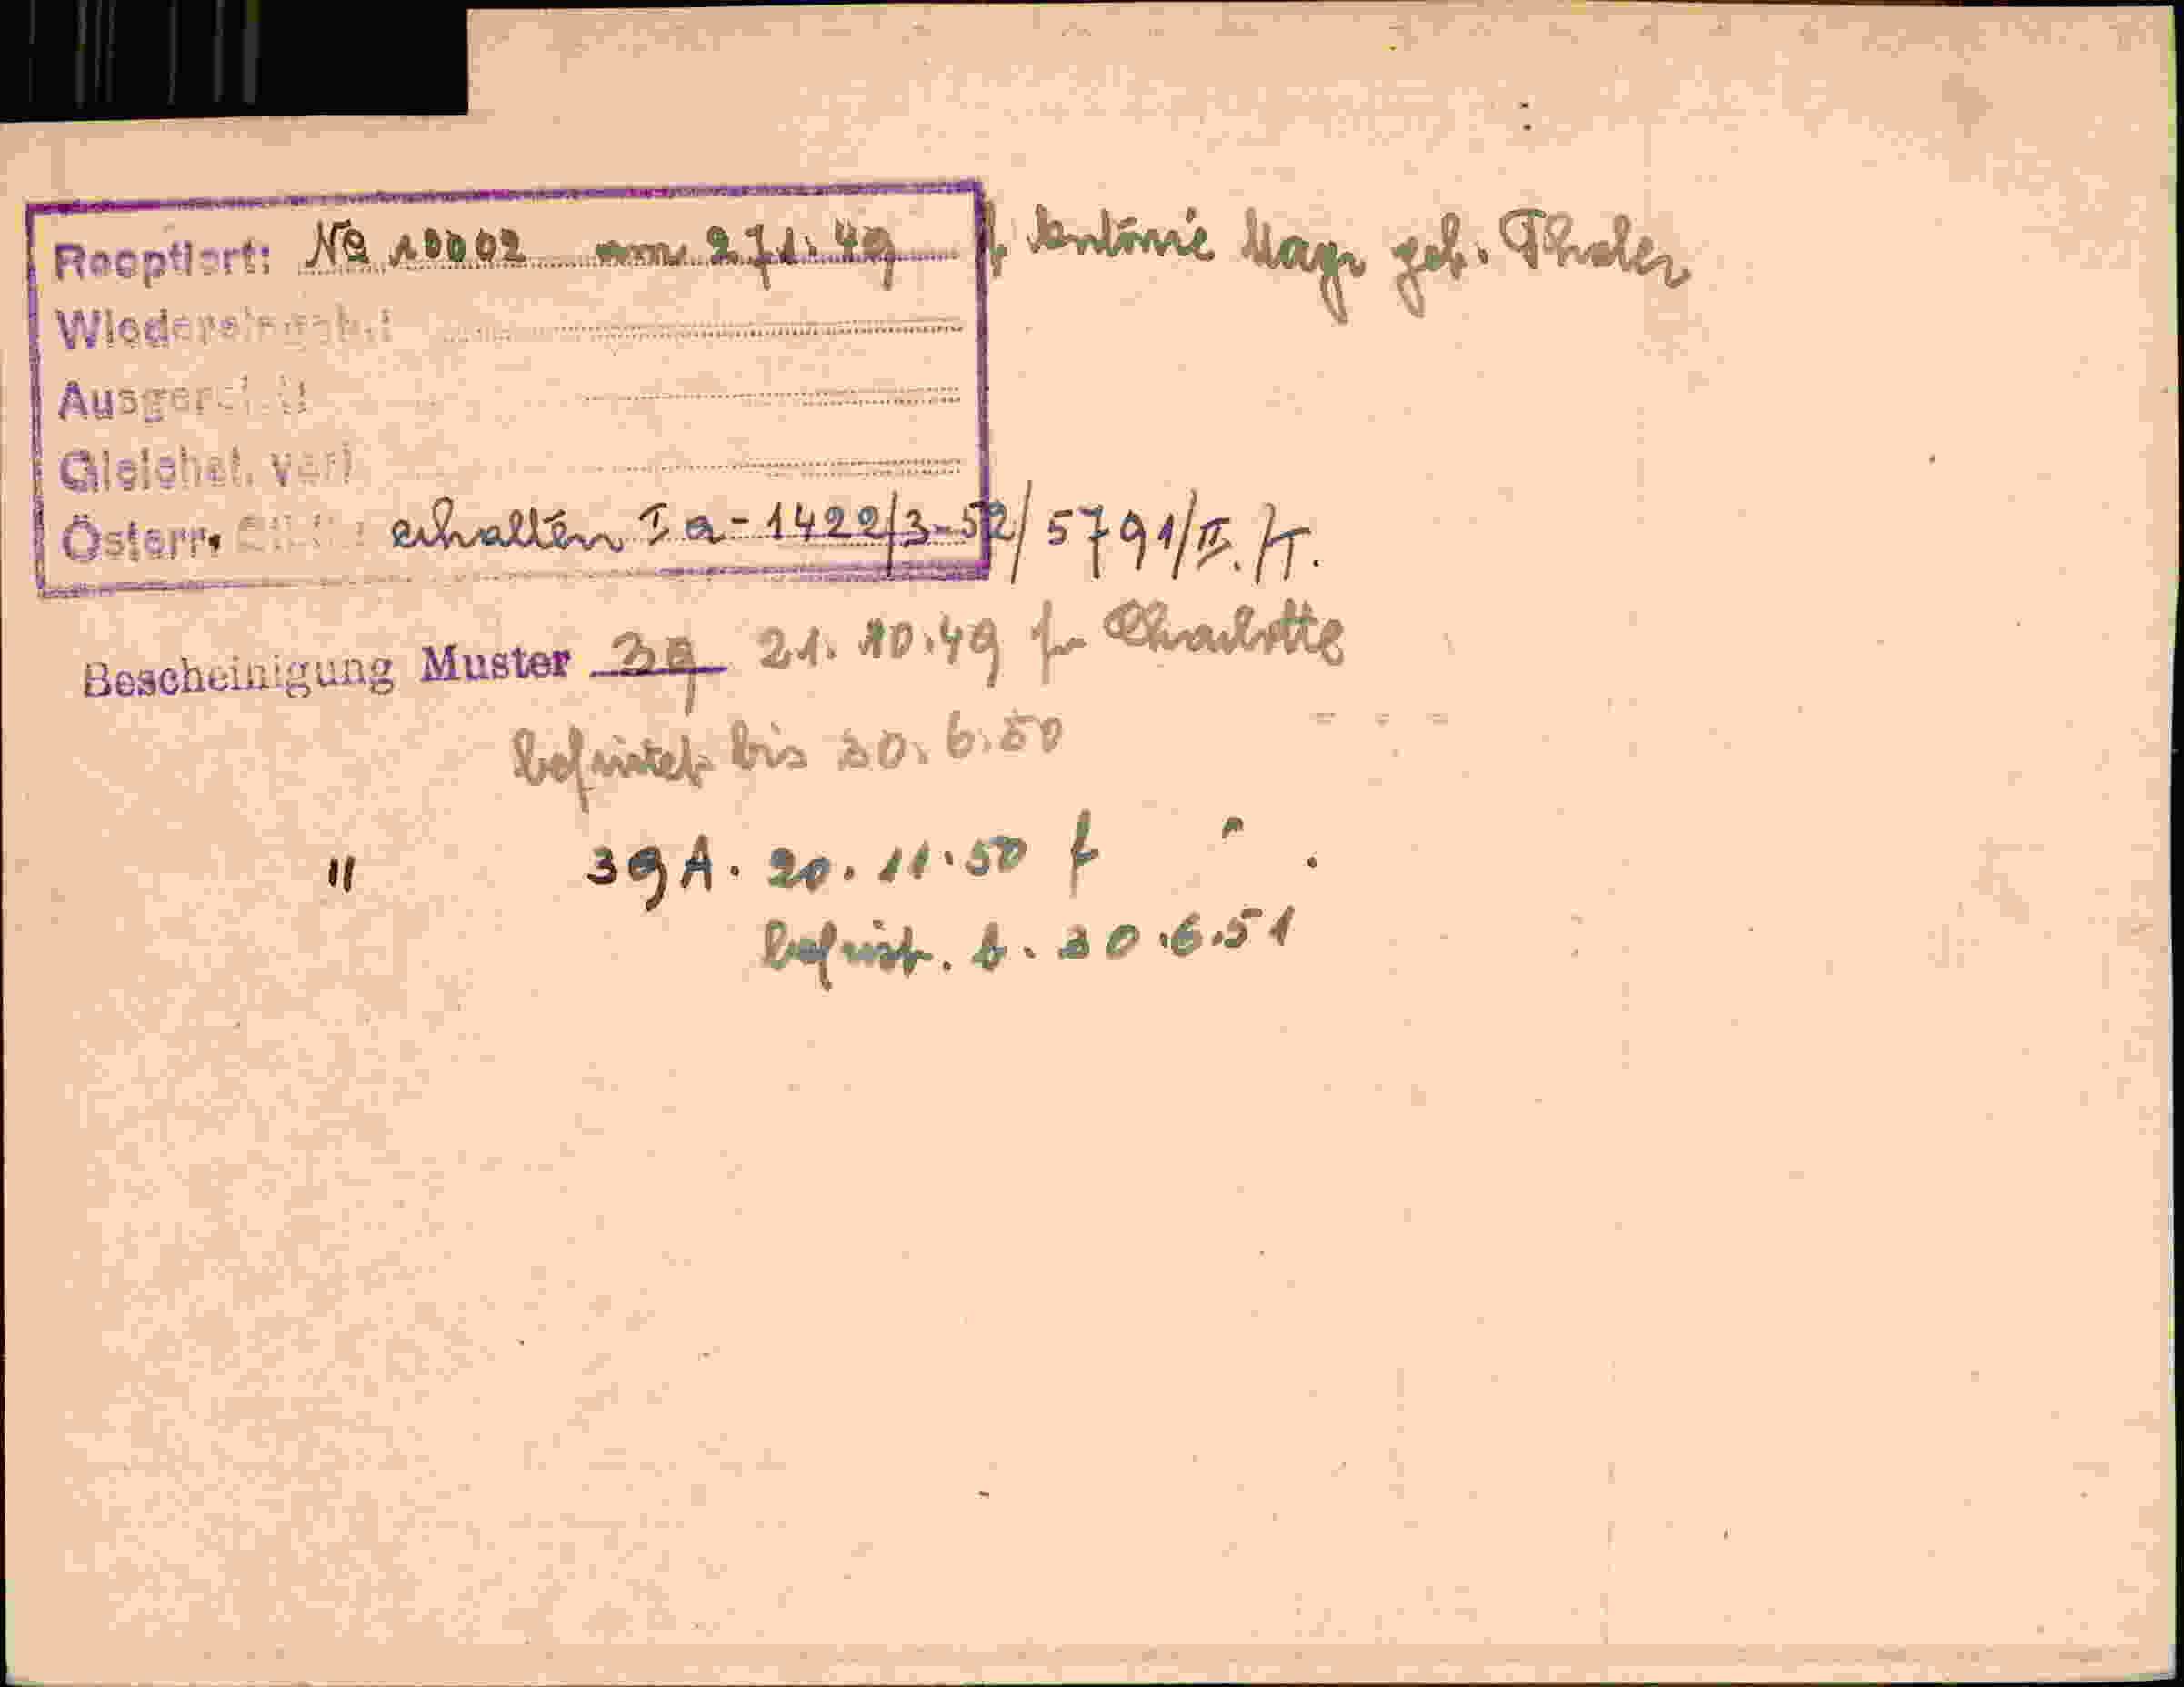 Reoptiert: No 10002 am 27.1.49 f. Antonie Mayr geb. Thaler
Wiedereingeb.:
Ausgereist:
Gleichst. verl
Österr. erhalten I a - 1422/3-52/5791/II. /T.
Bescheinigung Muster 39 21.10.49 für Charlotte
befristet bis 30.6.50
" 39A. 20.11.50 f "
befrist. b. 30.6.51